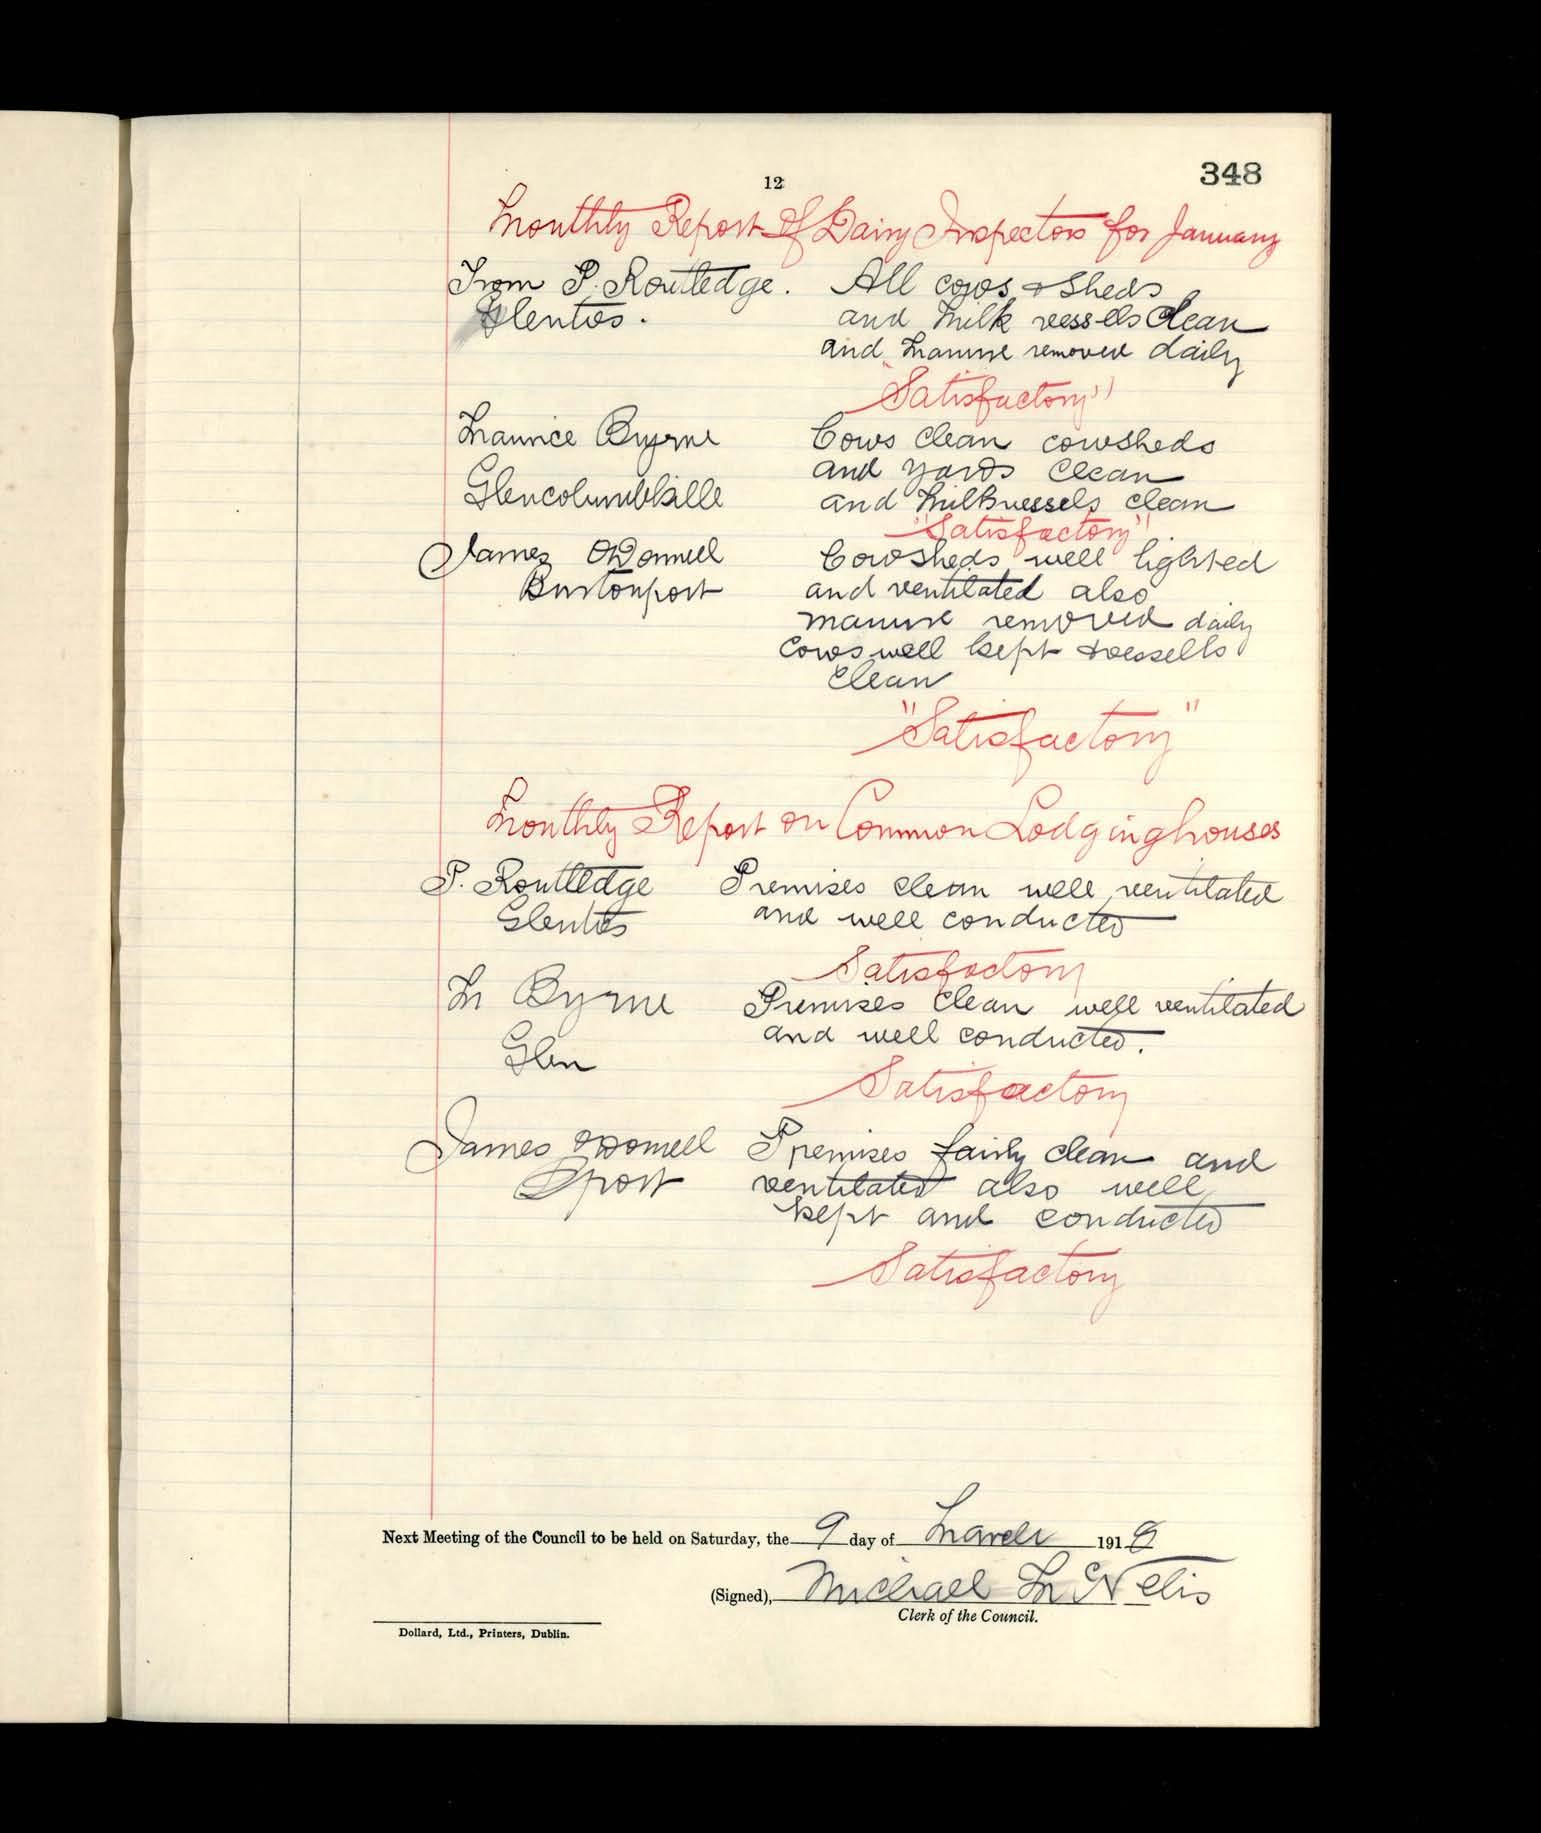 348
12
Monthly Report Of Dairy Inspectors for January
From P. Routledge. All cows & Sheds
Glenties. and Milk vessels Clean
and Manure removed daily
"Satisfactory"
Maurice Byrne Cows Clean cowsheds
and yards Clean
Glencolumbkille and Milkvessels clean
"Satisfactory"
James O'Donnell Cowsheds well lighted
Burtonport and ventilated also
manure removed daily
Cows well kept & vessells
Clean
"Satisfactory"
Monthly Report on Common Lodginghouses
P. Routledge Premises clean well ventilated
Glenties and well conducted
Satisfactory
M Byrne Premises Clean well ventilated
and well conducted.
Glen
Satisfactory
James O'Donnell Premises fairly clean and
Bport ventilated also well
kept and conducted
Satisfactory
Next Meeting of the Council to be held on Saturday, the 9 day of March 1918
(Signed), Michael McNelis
Clerk of the Council.
Dollard, Ltd., Printers, Dublin.